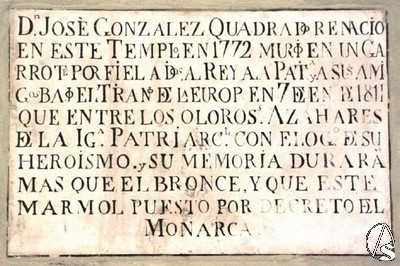 Dⁿ JOSÈ GONZALEZ QUADRADO RENACIO
EN ESTE TEMPLo EN 1772 MURIÓ EN UN GA
RROTE POR FIEL A DIOS, AL REY A LA PATRIA Y A SUS AMI
GOS BAJO EL TIRANO DE LA EUROPA EN 7 DE EN. DE 1811
QUE ENTRE LOS OLOROSOS AZAHARES
DE LA IGª PATRIARCL CON ELOGIO DE SU
HEROÍSMO, Y SU MEMORIA DURARÁ
MAS QUE EL BRONCE, Y QUE ESTE
MARMOL PUESTO POR DECRETO DEL
MONARCA